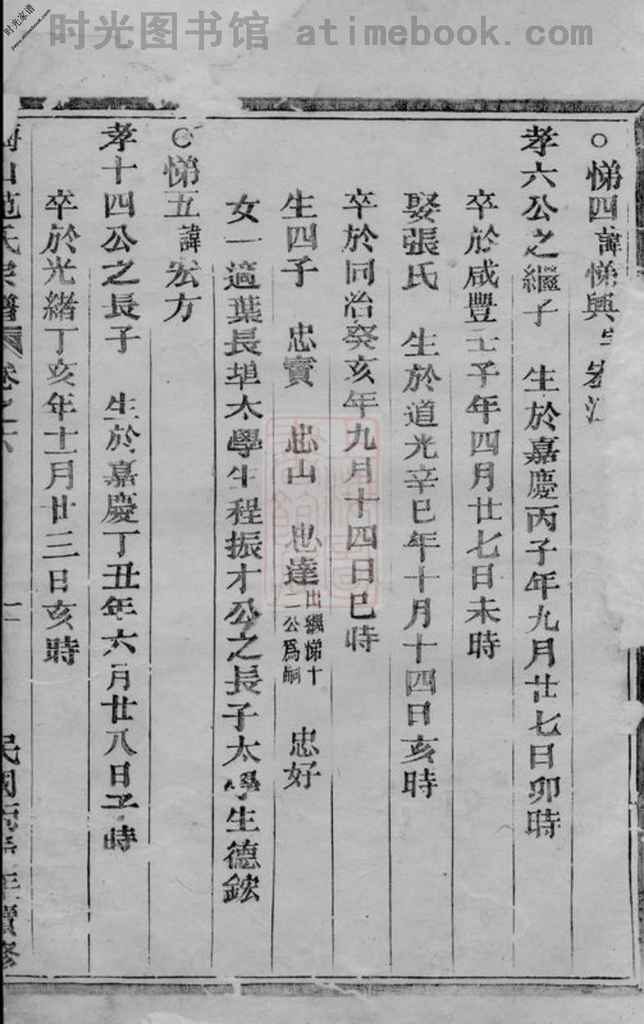 时光图书馆 atimebook.com
时光家谱
○悌四諱悌興字宏江
孝六公之繼子 生於嘉慶丙子年九月廿七日卯時
卒於咸豐壬子年四月廿七日未時
娶張氏 生於道光辛巳年十月十四日亥時
卒於同治癸亥年九月十四日巳時
生四子 忠實 忠山 忠達出繼悌十二公爲嗣 忠好
女一適葉長埠太學生程振才公之長子太學生德鋐
○悌五諱宏方
孝十四公之長子 生於嘉慶丁丑年六月廿八日子時
卒於光緒丁亥年十一月廿三日亥時
山范氏宗譜 卷之六 民國 年 續修